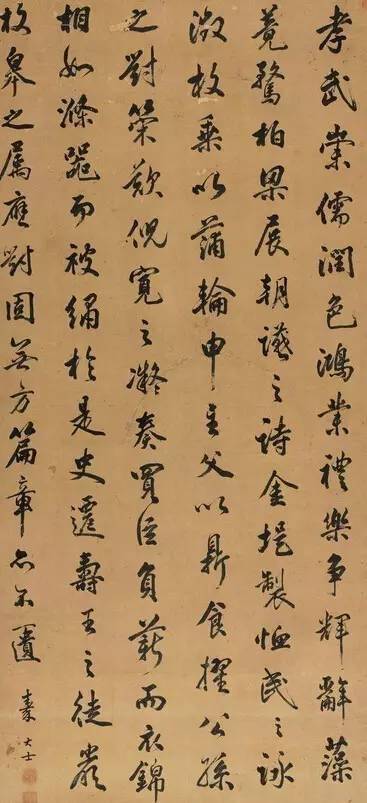 孝武崇儒潤色鴻業禮樂爭輝辭藻
競騖柏梁展朝讌之詩金堤製恤民之詠
徵枚乘以蒲輪申主父以鼎食擢公孫
之對策歎倪寬之凝奏買臣負薪而衣錦
相如滌器而被繡於是史遷壽王之徒嚴
枚皋之屬應對固無方篇章亦不匱
秦大士